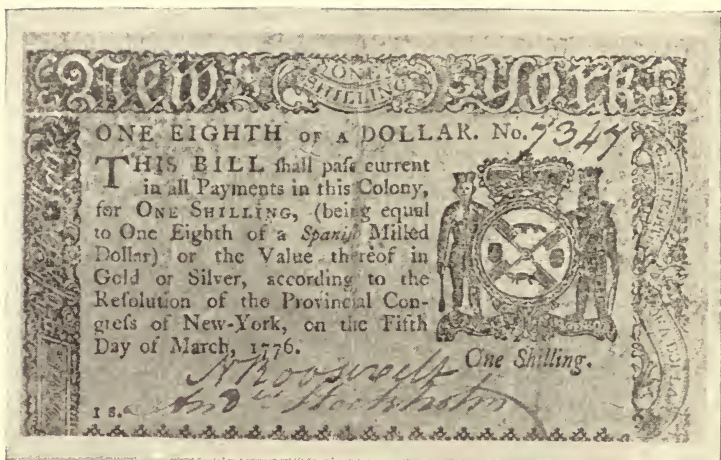 New ONE SHILLING York
ONE EIGHTH OF A DOLLAR. No. 7347
THIS BILL ſhall paſs current
in all Payments in this Colony,
for ONE SHILLING, (being equal
to One Eighth of a Spaniſh Milled
Dollar) or the Value thereof in
Gold or Silver, according to the
Reſolution of the Provincial Con-
greſs of New-York, on the Fifth
Day of March, 1776.
One Shilling.
N Roosevelt
1 s. And Stockholm